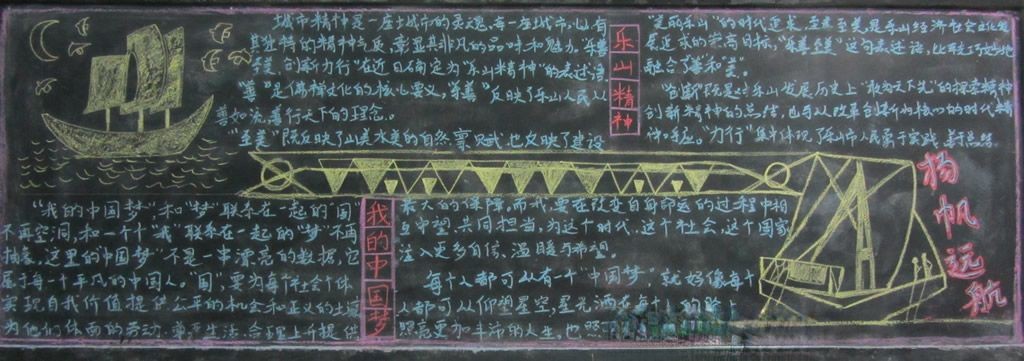 城市精神是一座城市的灵魂,每一座城市,也有
其独特的精神气质,彰显其非凡的品味和魅力。"乐善
至美,创新力行"在近日确定为"乐山精神"的表述语
"善"是佛禅文化的核心要义,"乐善"反映了乐山人民从
善如流,善行天下的理念。
"至美"既反映了山美水美的自然禀赋,也反映了建设
乐山精神
"美丽乐山"的时代追求,至善至美是乐山经济社会的发
展追求的崇高目标,"乐善至美"这句表述语,比较巧妙地
融合了"善和美"。
"创新"既是对乐山发展历史上"敢为天下先"的探索精神
创新精神的总结,也与以改革创新为核心的时代精
神呼应。"力行"集中体现了乐山市人民勇于实践,善于总结
杨帆远航
"我的中国梦",和"梦"联系在一起的"国"
不再空洞,和一个个"我"联系在一起的"梦"不再
抽象,这里的中国梦不是一串漂亮的数据,它
属于每一个平凡的中国人。"国",要为每个社会个体
实现自我价值提供公平的机会和正义的土壤
为他们体面的劳动、尊严生活、合理上升提供
我的中国梦
最大的保障,而"我",要在改变自身命运的过程中相
互守望,共同担当,为这个时代,这个社会,这个国家
注入更多自信、温暖与希望。
每个人都可以有一个"中国梦",就好像每个
人都可以仰望星空,星光洒在每个人的脸上
照亮更加丰沛的人生,也照